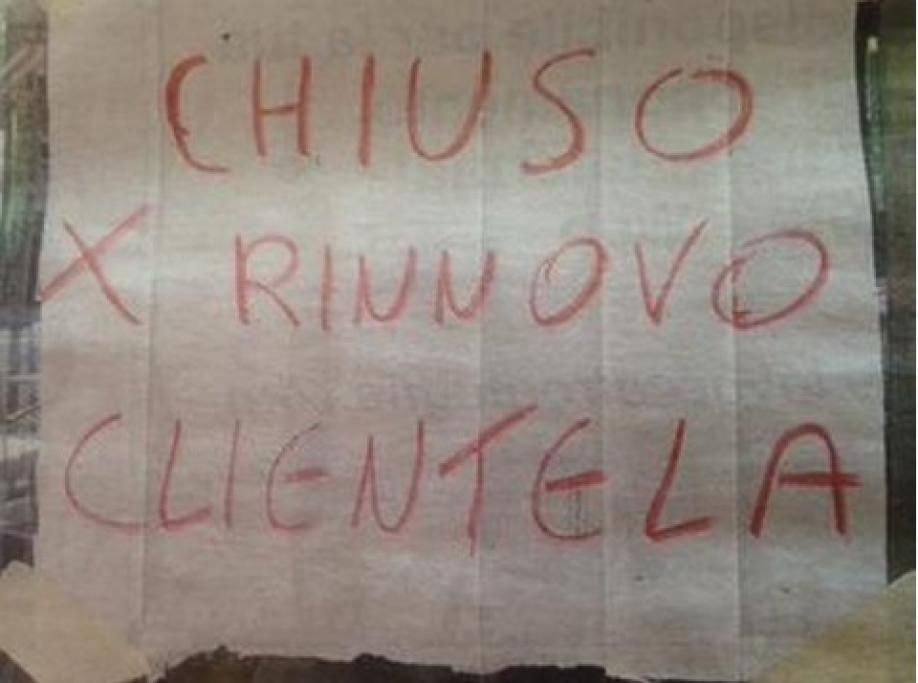 CHIUSO
X RINNOVO
CLIENTELA